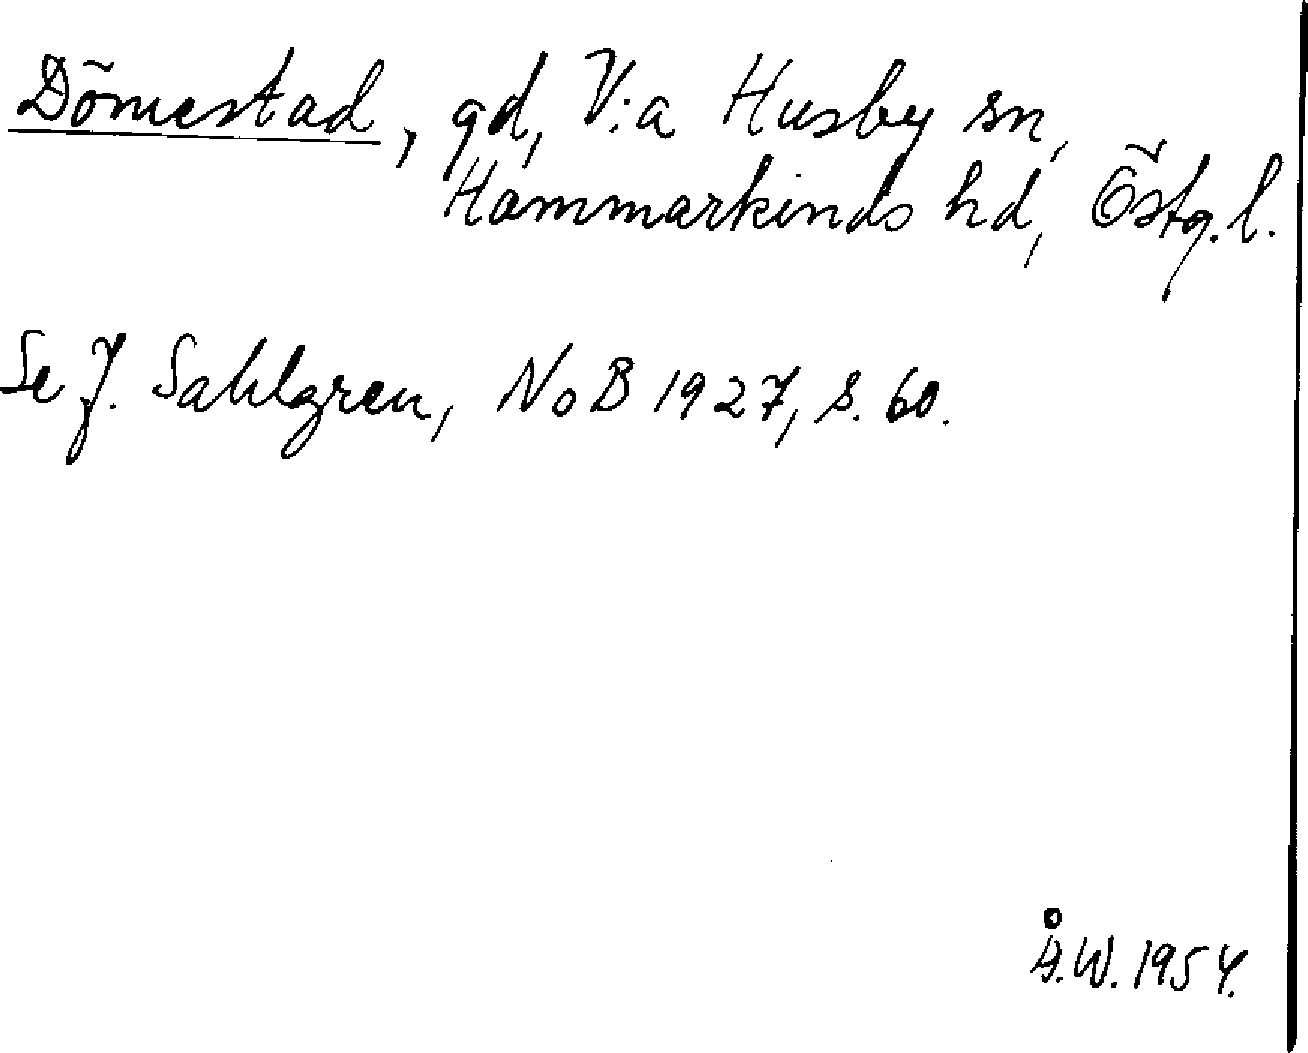 Dömestad, gd, V:a Husby sn,
Hammarkinds hd, Östg. l.
Se J. Sahlgren, NoB 1927, s. 60.
Å.W. 1954.